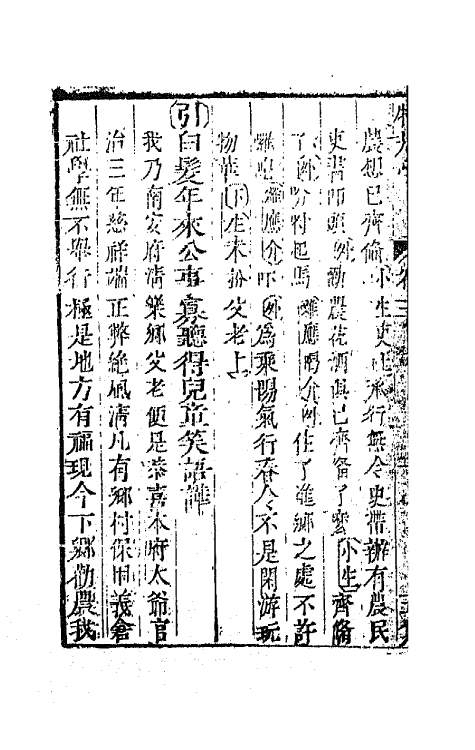 農想已齊備小生吏上承行無令史帶辦有農民
吏書叩頭外勸農花酒俱已齊備了麼小生齊備
了外吩咐起馬雜應喝介外住了離鄉之處不許
囉唣雜應介吓外為乘陽氣行春令不是閑游玩
物華下生末扮父老上
引白髮年來公事寡聽得兒童笑語譁
我乃南安府清樂鄉父老便是恭喜本府太爺官
治三年慈祥端正弊絕風清凡有鄉村保甲義倉
社學無不舉行極是地方有福現今下鄉勸農我